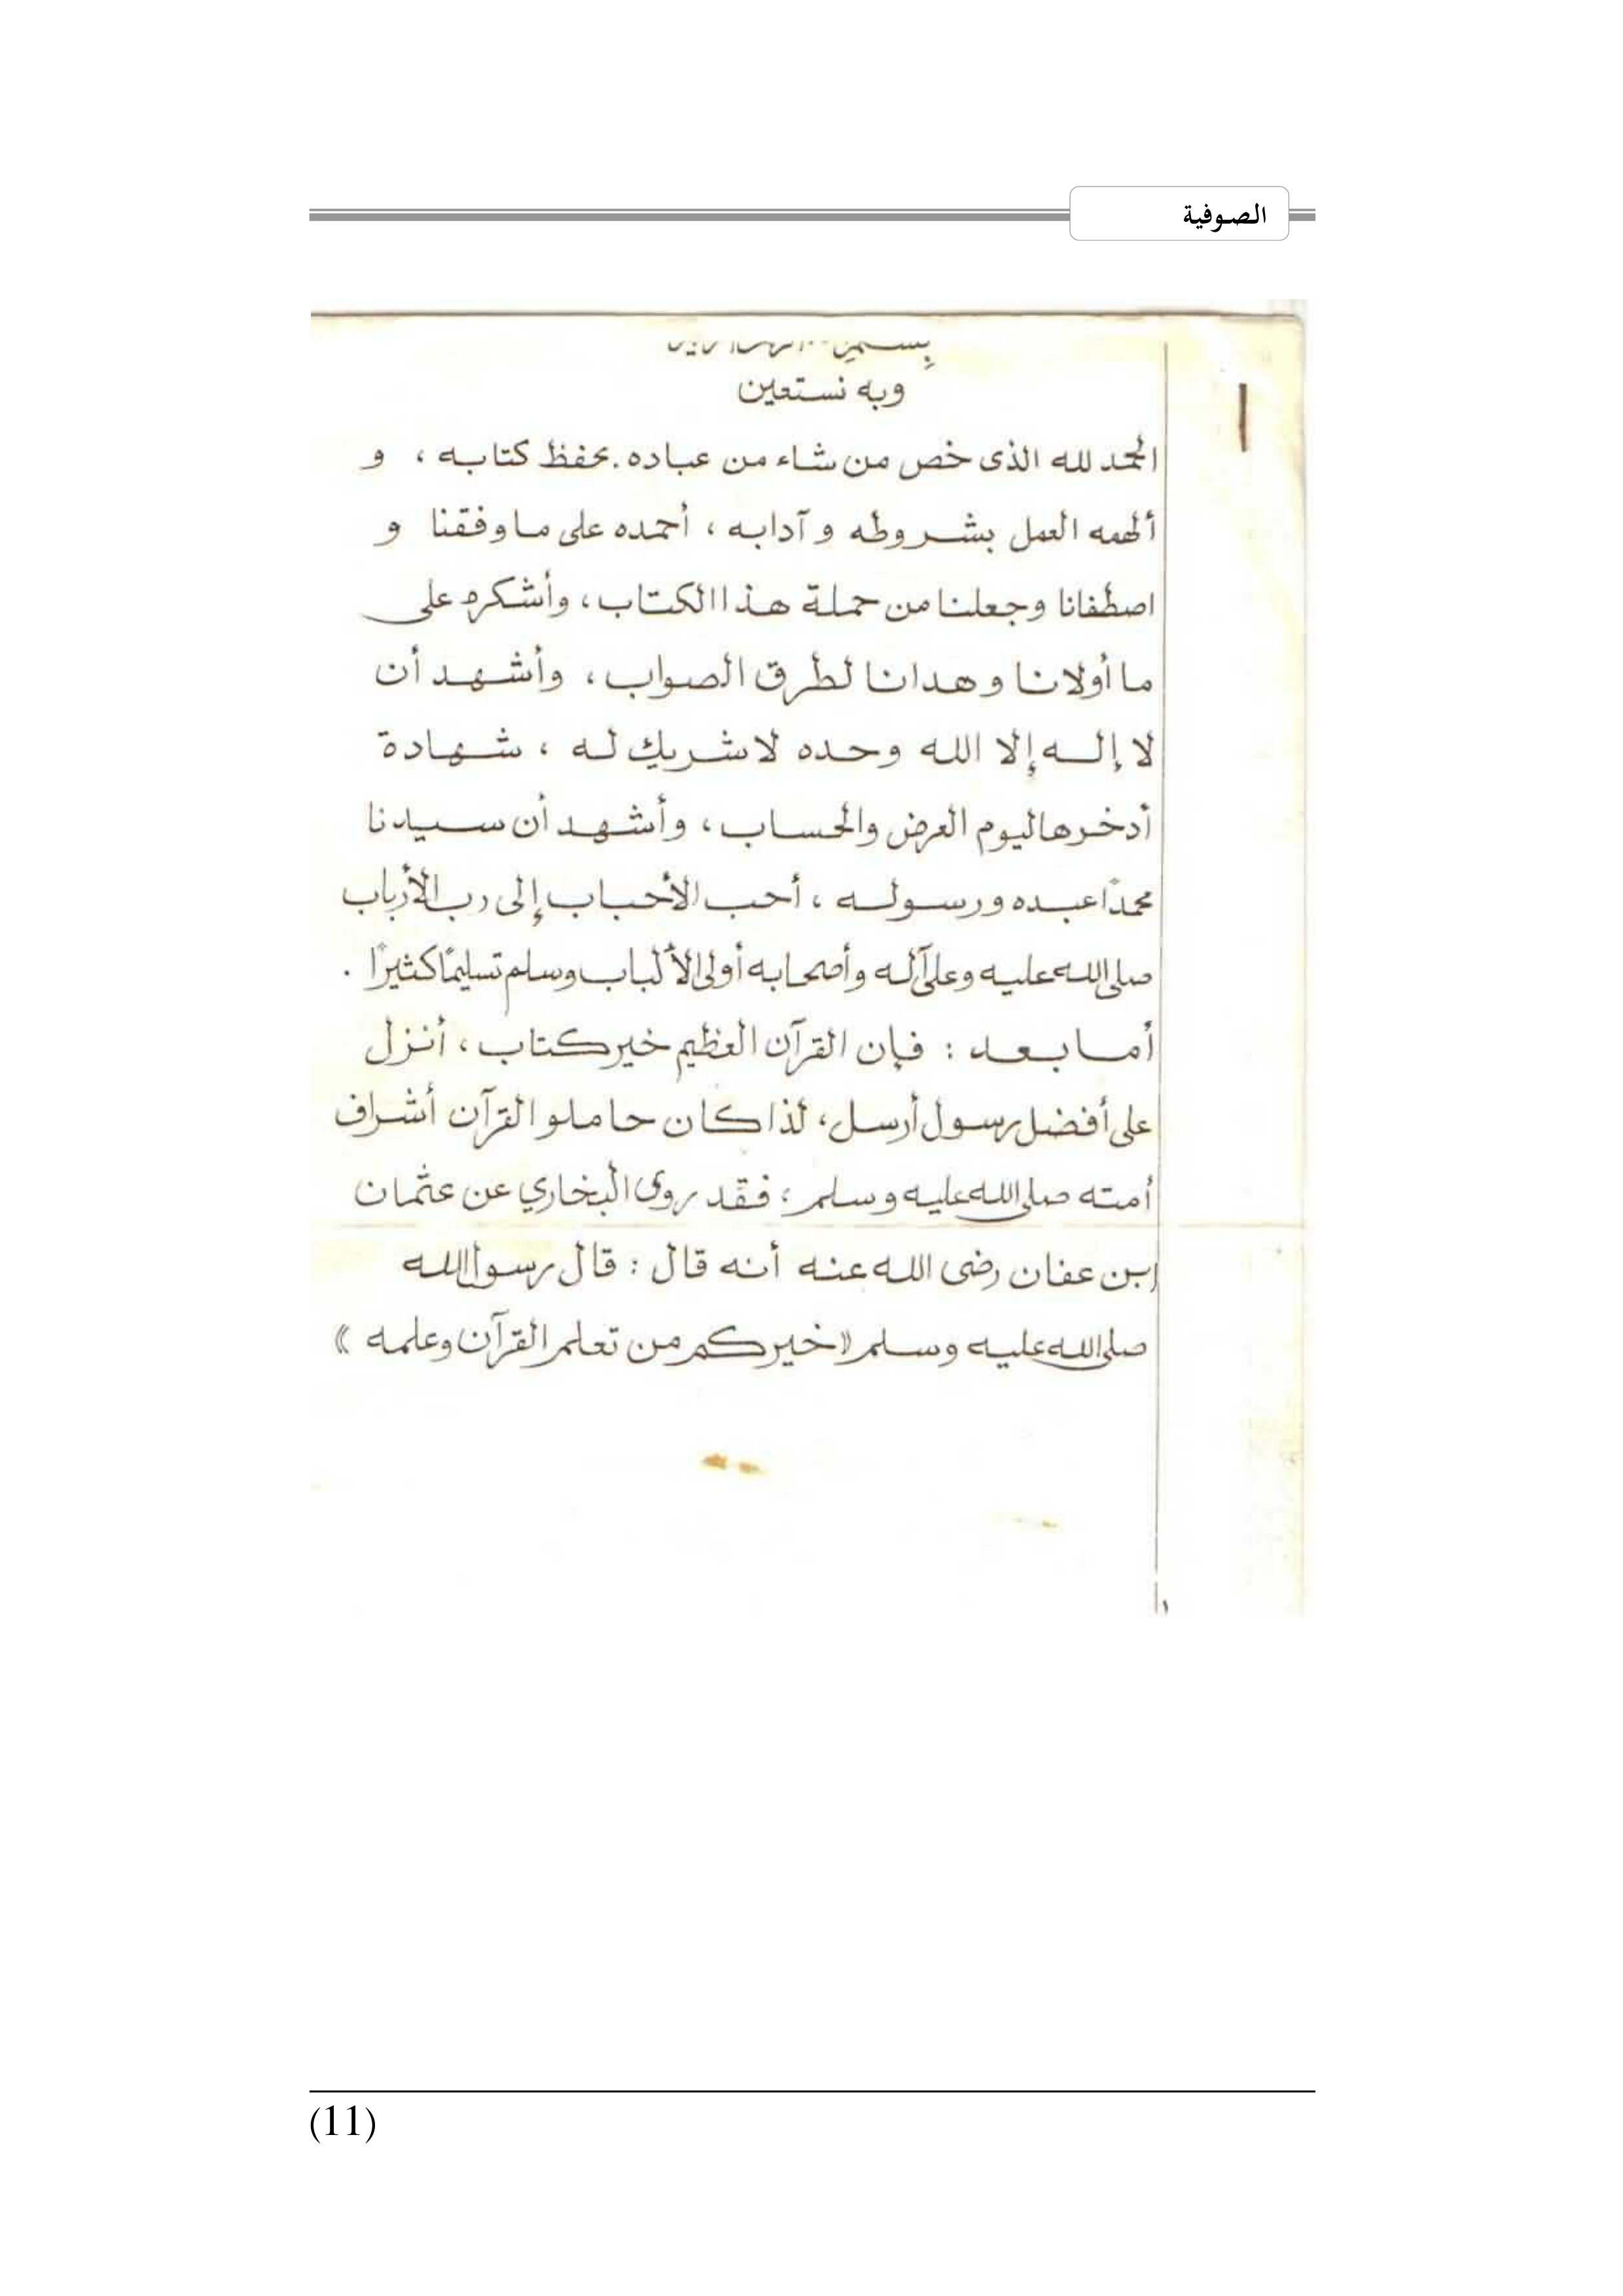 الصوفية
وبه نستعين
الحمد لله الذى خص من شاء من عباده بحفظ كتابه ، و
ألهمه العمل بشروطه و آدابه ، أحمده على ما وفقنا و
اصطفانا وجعلنا من حملة هذا الكتاب ، وأشكره على
ما أولانا وهدانا لطرق الصواب ، وأشهد أن
لا إله إلا الله وحده لا شريك له ، شهادة
أدخرها ليوم العرض والحساب ، وأشهد أن سيدنا
محمدًا عبده ورسوله ، أحب الأحباب إلى رب الأرباب
صلى الله عليه وعلى آله وأصحابه أولى الألباب وسلم تسليمًا كثيرًا .
أما بعد : فإن القرآن العظيم خير كتاب ، أنزل
على أفضل رسول أرسل ، لذا كان حاملو القرآن أشراف
أمته صلى الله عليه وسلم ، فقد روى البخاري عن عثمان
ابن عفان رضى الله عنه أنه قال : قال رسول الله
صلى الله عليه وسلم « خيركم من تعلم القرآن وعلمه »
(11)